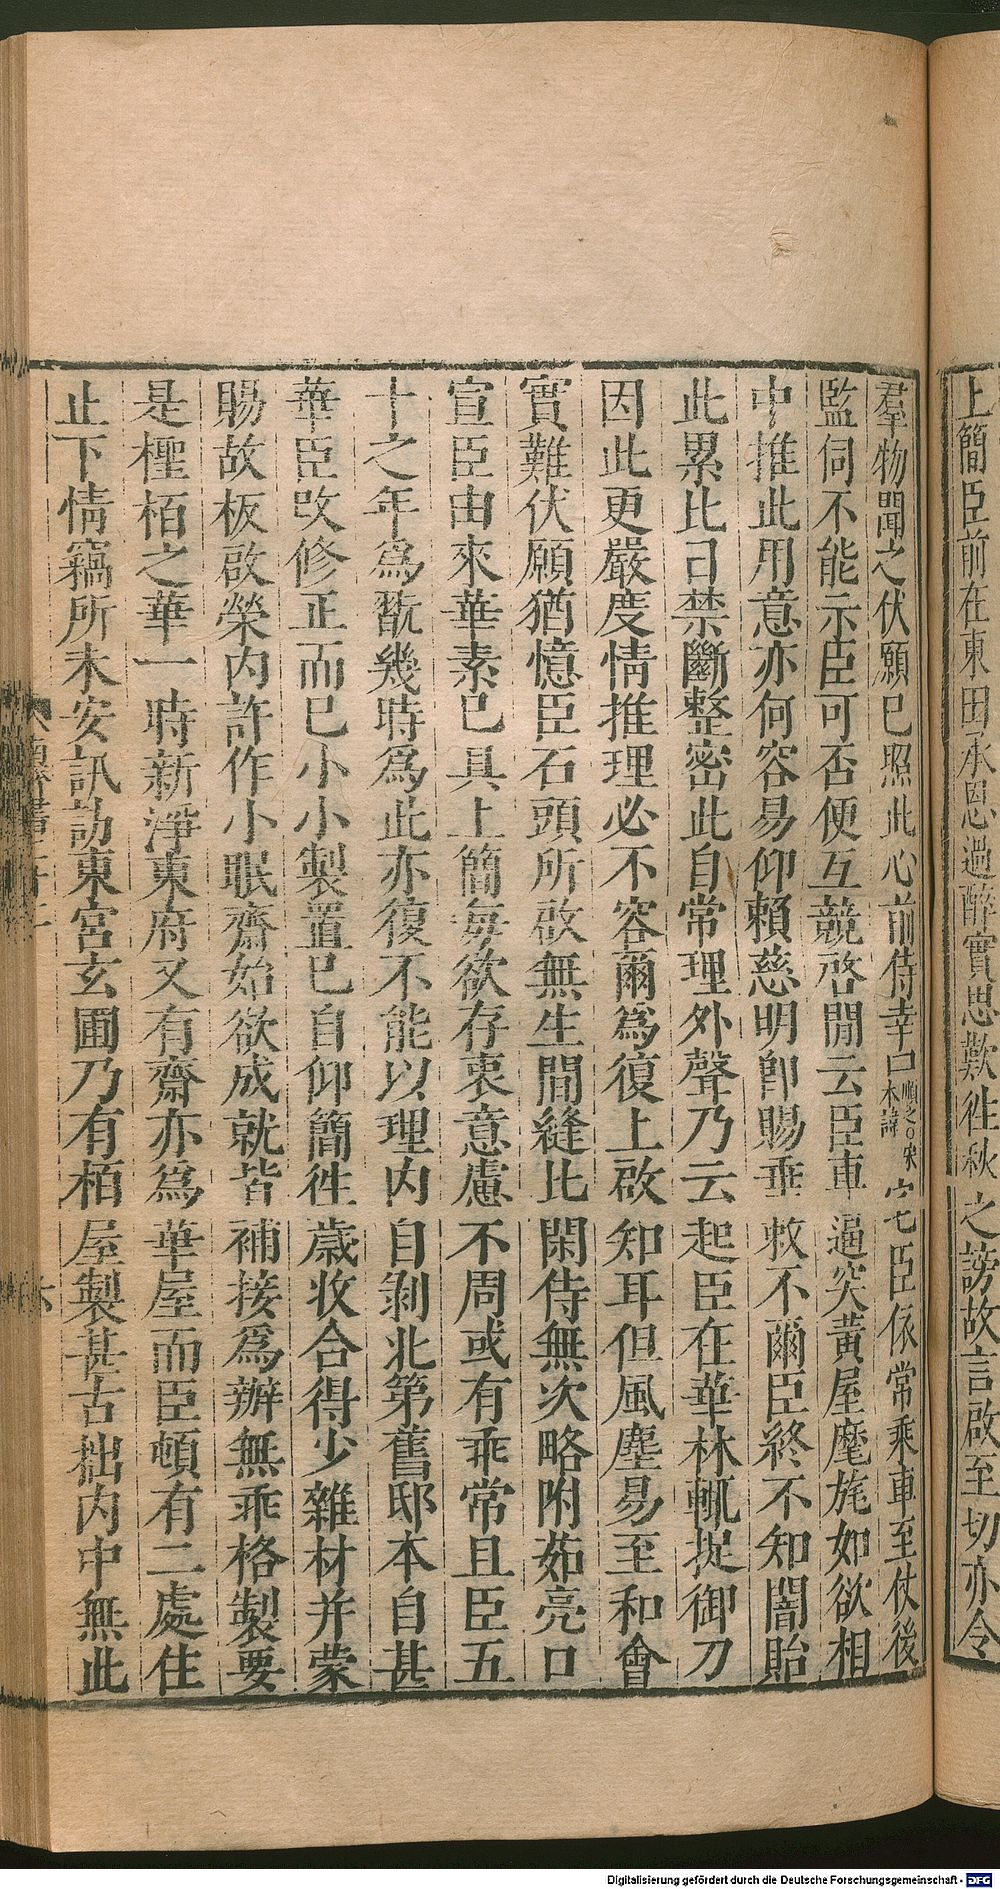 上簡臣前在東田承恩過醉實思歎往秋之謗故言啟至切亦令
羣物聞之伏願已照此心前侍幸口順之○宋本諱宅臣依常乘車至仗後
監伺不能示臣可否便互競啓聞云臣車逼突黃屋麾旄如欲相
中推此用意亦何容易仰賴慈明卽賜垂敕不爾臣終不知闇貽
此累比日禁斷整密此自常理外聲乃云起臣在華林輒捉御刀
因此更嚴度情推理必不容爾爲復上啟知耳但風塵易至和會
實難伏願猶憶臣石頭所啟無生間縫比閑侍無次略附茹亮口
宣臣由來華素已具上簡每欲存衷意慮不周或有乖常且臣五
十之年爲翫幾時爲此亦復不能以理内自剝北第舊邸本自甚
華臣改修正而已小小製置已自仰簡往歲收合得少雜材并蒙
賜故板啟榮内許作小眠齋始欲成就皆補接爲辦無乖格製要
是檉栢之華一時新淨東府又有齋亦爲華屋而臣頓有二處住
止下情竊所未安訊訪東宮玄圃乃有栢屋製甚古拙内中無此
南齊書二十二
六
Digitalisierung gefördert durch die Deutsche Forschungsgemeinschaft - DFG